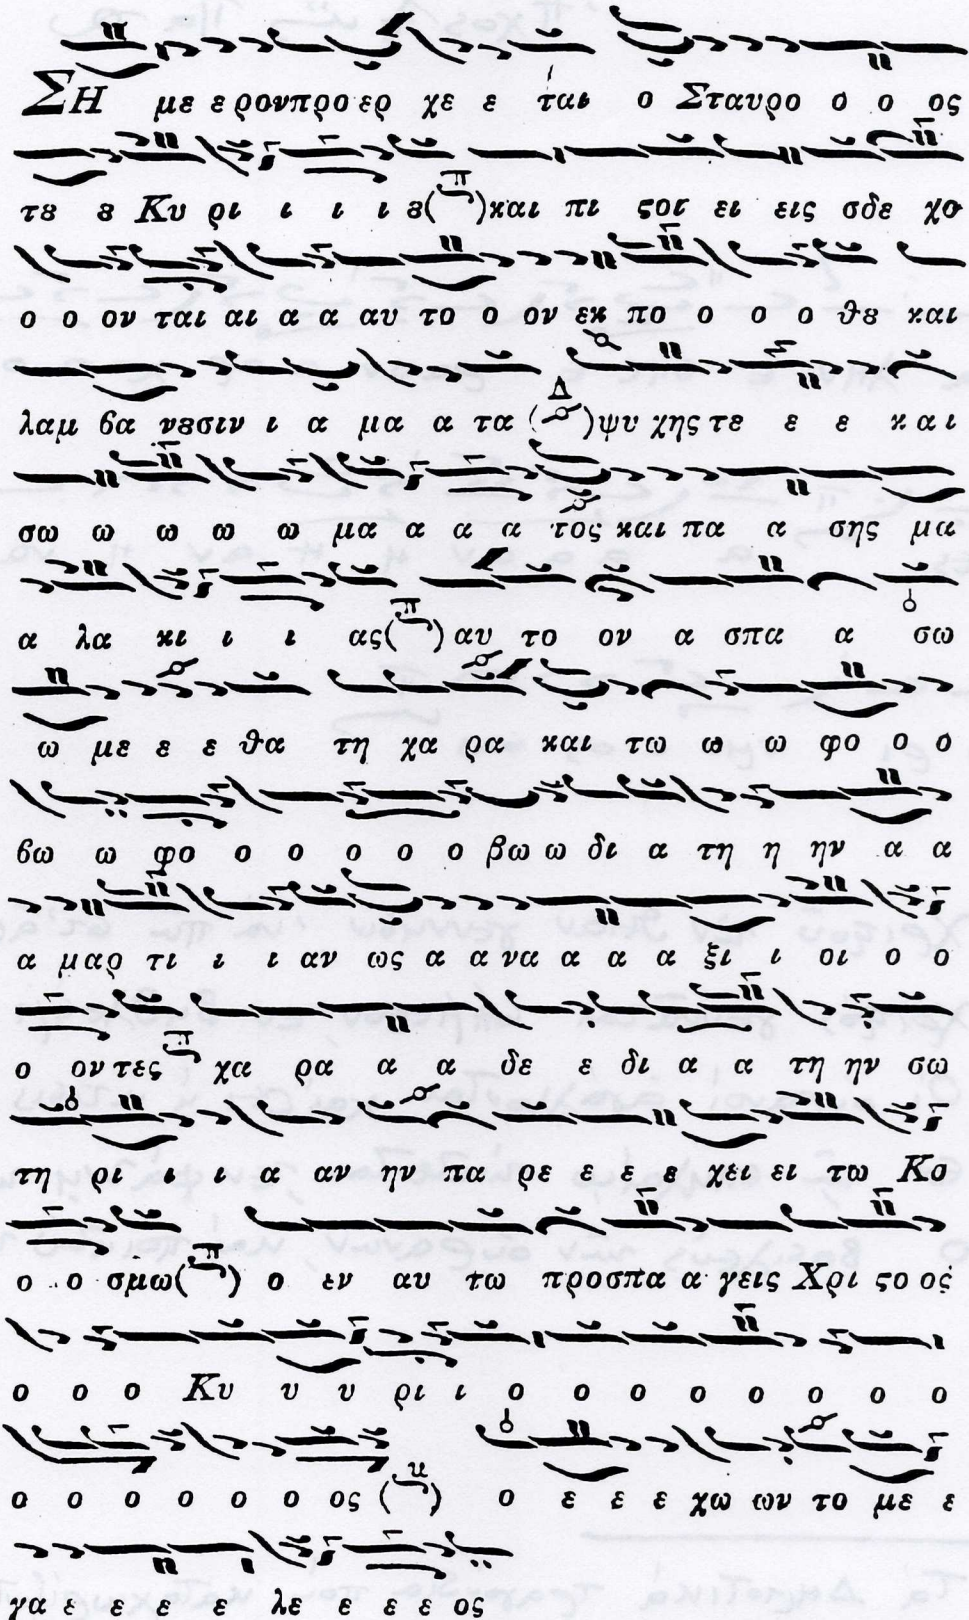 ΣΗ με ε ρον προ ερ χε ε ται ο Σταυρο ο ο ος
τȣ ȣ Κυ ρι ι ι ι ȣ (π) και πι ϛοι ει εις σδε χο
ο ο ον ται αι α α αυ το ο ον εκ πο ο ο ο θȣ και
λαμ βα νȣσιν ι α μα α τα (Δ) ψυ χης τε ε ε και
σω ω ω ω ω μα α α α τος και πα α σης μα
α λα κι ι ι ας (π) αυ το ον α σπα α σω
ω με ε ε θα τη χα ρα και τω ω ω φο ο ο
βω ω φο ο ο ο ο ο βω ω δι α τη η ην α α
α μαρ τι ι ι αν ως α α να α α α ξι ι οι ο ο
ο ον τες π χα ρα α α δε ε δι α α τη ην σω
τη ρι ι ι α αν ην πα ρε ε ε ε χει ει τω Κο
ο ο σμω (π) ο εν αυ τω προσπα α γεις Χρι ϛο ος
ο ο ο Κυ υ υ ρι ι ο ο ο ο ο ο ο
ο ο ο ο ο ο ος (υ) ο ε ε ε χω ων το με ε
γα ε ε ε ε λε ε ε ε ος